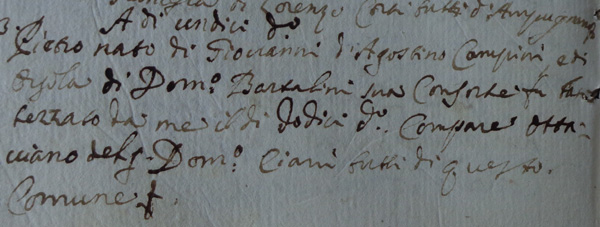 di Lorenzo Corsi tutti d'Ampugnano
3. A di undici do
Pietro nato di Giovanni d'Agostino Campini e di
Orsola di Dom.o Bartalini sua Consorte fu bat
tezzato da me il di dodici do. Compare Otta-
viano del q. Dom.o Ciani tutti di questo.
Comune